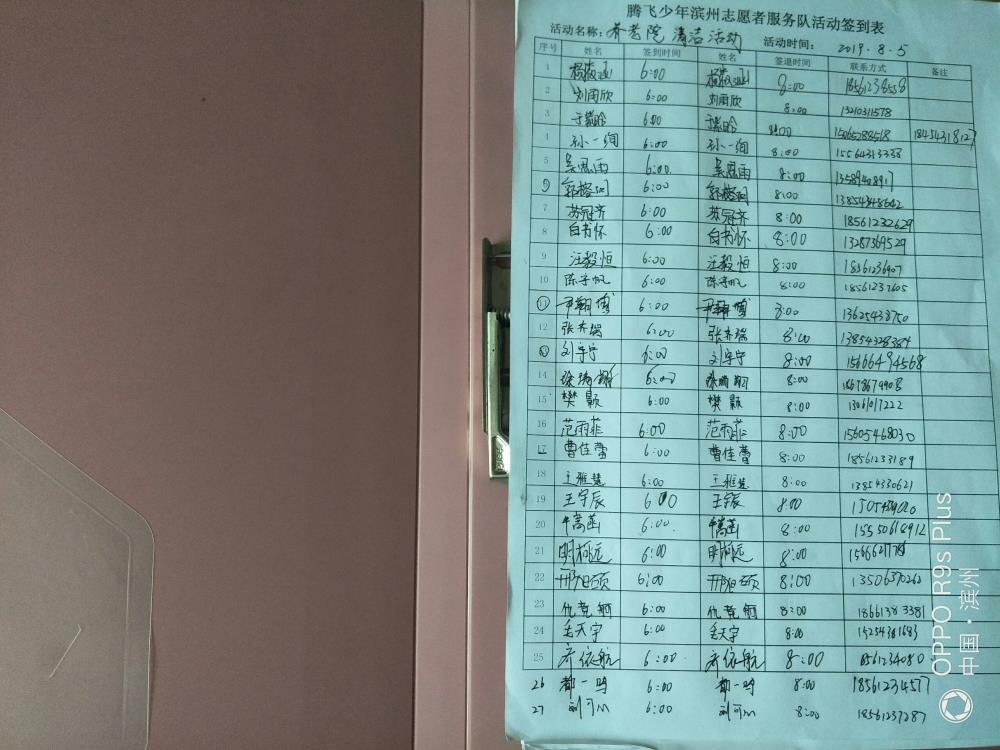 腾飞少年滨州志愿者服务队活动签到表
活动名称：养老院 清洁活动 活动时间： 2019.8.5
序号 姓名 签到时间 姓名 签退时间 联系方式 备注
1 6:00 8:00 18561238558
2 刘雨欣 6:00 刘雨欣 8:00 13210311578
3 6:00 8:00 15065288518 18454318127
4 孙一绚 6:00 孙一绚 8:00 15564313338
5 吴思雨 6:00 吴思雨 8:00 13589408917
6:00 8:00 13854348642
7 苏冠齐 6:00 苏冠齐 8:00 18561232629
8 白书怀 6:00 白书怀 8:00 13287369529
9 汪毅恒 6:00 汪毅恒 8:00 18561236907
10 陈宇帆 6:00 陈宇帆 8:00 18561237605
11 尹翔博 6:00 尹翔博 8:00 13625438750
12 张齐瑞 6:00 张齐瑞 8:00 13854328384
刘宇宁 6:00 刘宇宁 8:00 15666494568
14 6:00 8:00 18678679908
15 樊颢 6:00 樊颢 8:00 13061017222
16 范雨菲 6:00 范雨菲 8:00 15605468030
17 曹佳蕾 6:00 曹佳蕾 8:00 18561233189
18 王雅慧 6:00 王雅慧 8:00 13854330621
19 王宇辰 6:00 王宇辰 8:00
20 牛嵩菡 6:00 牛嵩菡 8:00 15550618912
21 明柯远 6:00 明柯远 8:00
22 邢旭硕 6:00 邢旭硕 8:00 13506370262
23 仇竞舸 6:00 仇竞舸 8:00 18661383381
24 毛天宇 6:00 毛天宇 8:00 15254381683
25 齐依航 6:00 齐依航 8:00 18561234080
26 都一鸣 6:00 都一鸣 8:00 18561234577
27 刘可心 6:00 刘可心 8:00 18561237287
PUSH
OPPO R9s Plus
中国·滨州